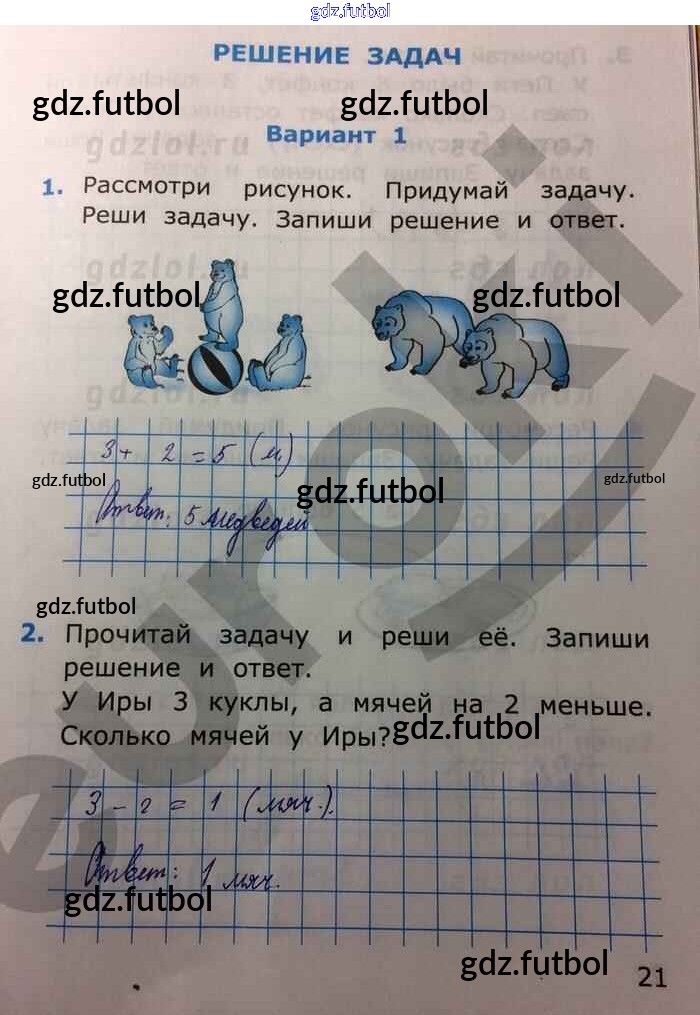 gdz.futbol
РЕШЕНИЕ ЗАДАЧ
gdz.futbol gdz.futbol
Вариант 1
1. Рассмотри рисунок. Придумай задачу.
Реши задачу. Запиши решение и ответ.
gdz.futbol gdz.futbol
3 + 2 = 5 (м)
gdz.futbol gdz.futbol gdz.futbol
Ответ: 5 медведей
gdz.futbol
2. Прочитай задачу и реши её. Запиши
решение и ответ.
У Иры 3 куклы, а мячей на 2 меньше.
Сколько мячей у Иры?
gdz.futbol
3 - 2 = 1 (мяч.).
Ответ: 1 мяч.
gdz.futbol
gdz.futbol
21
euroki